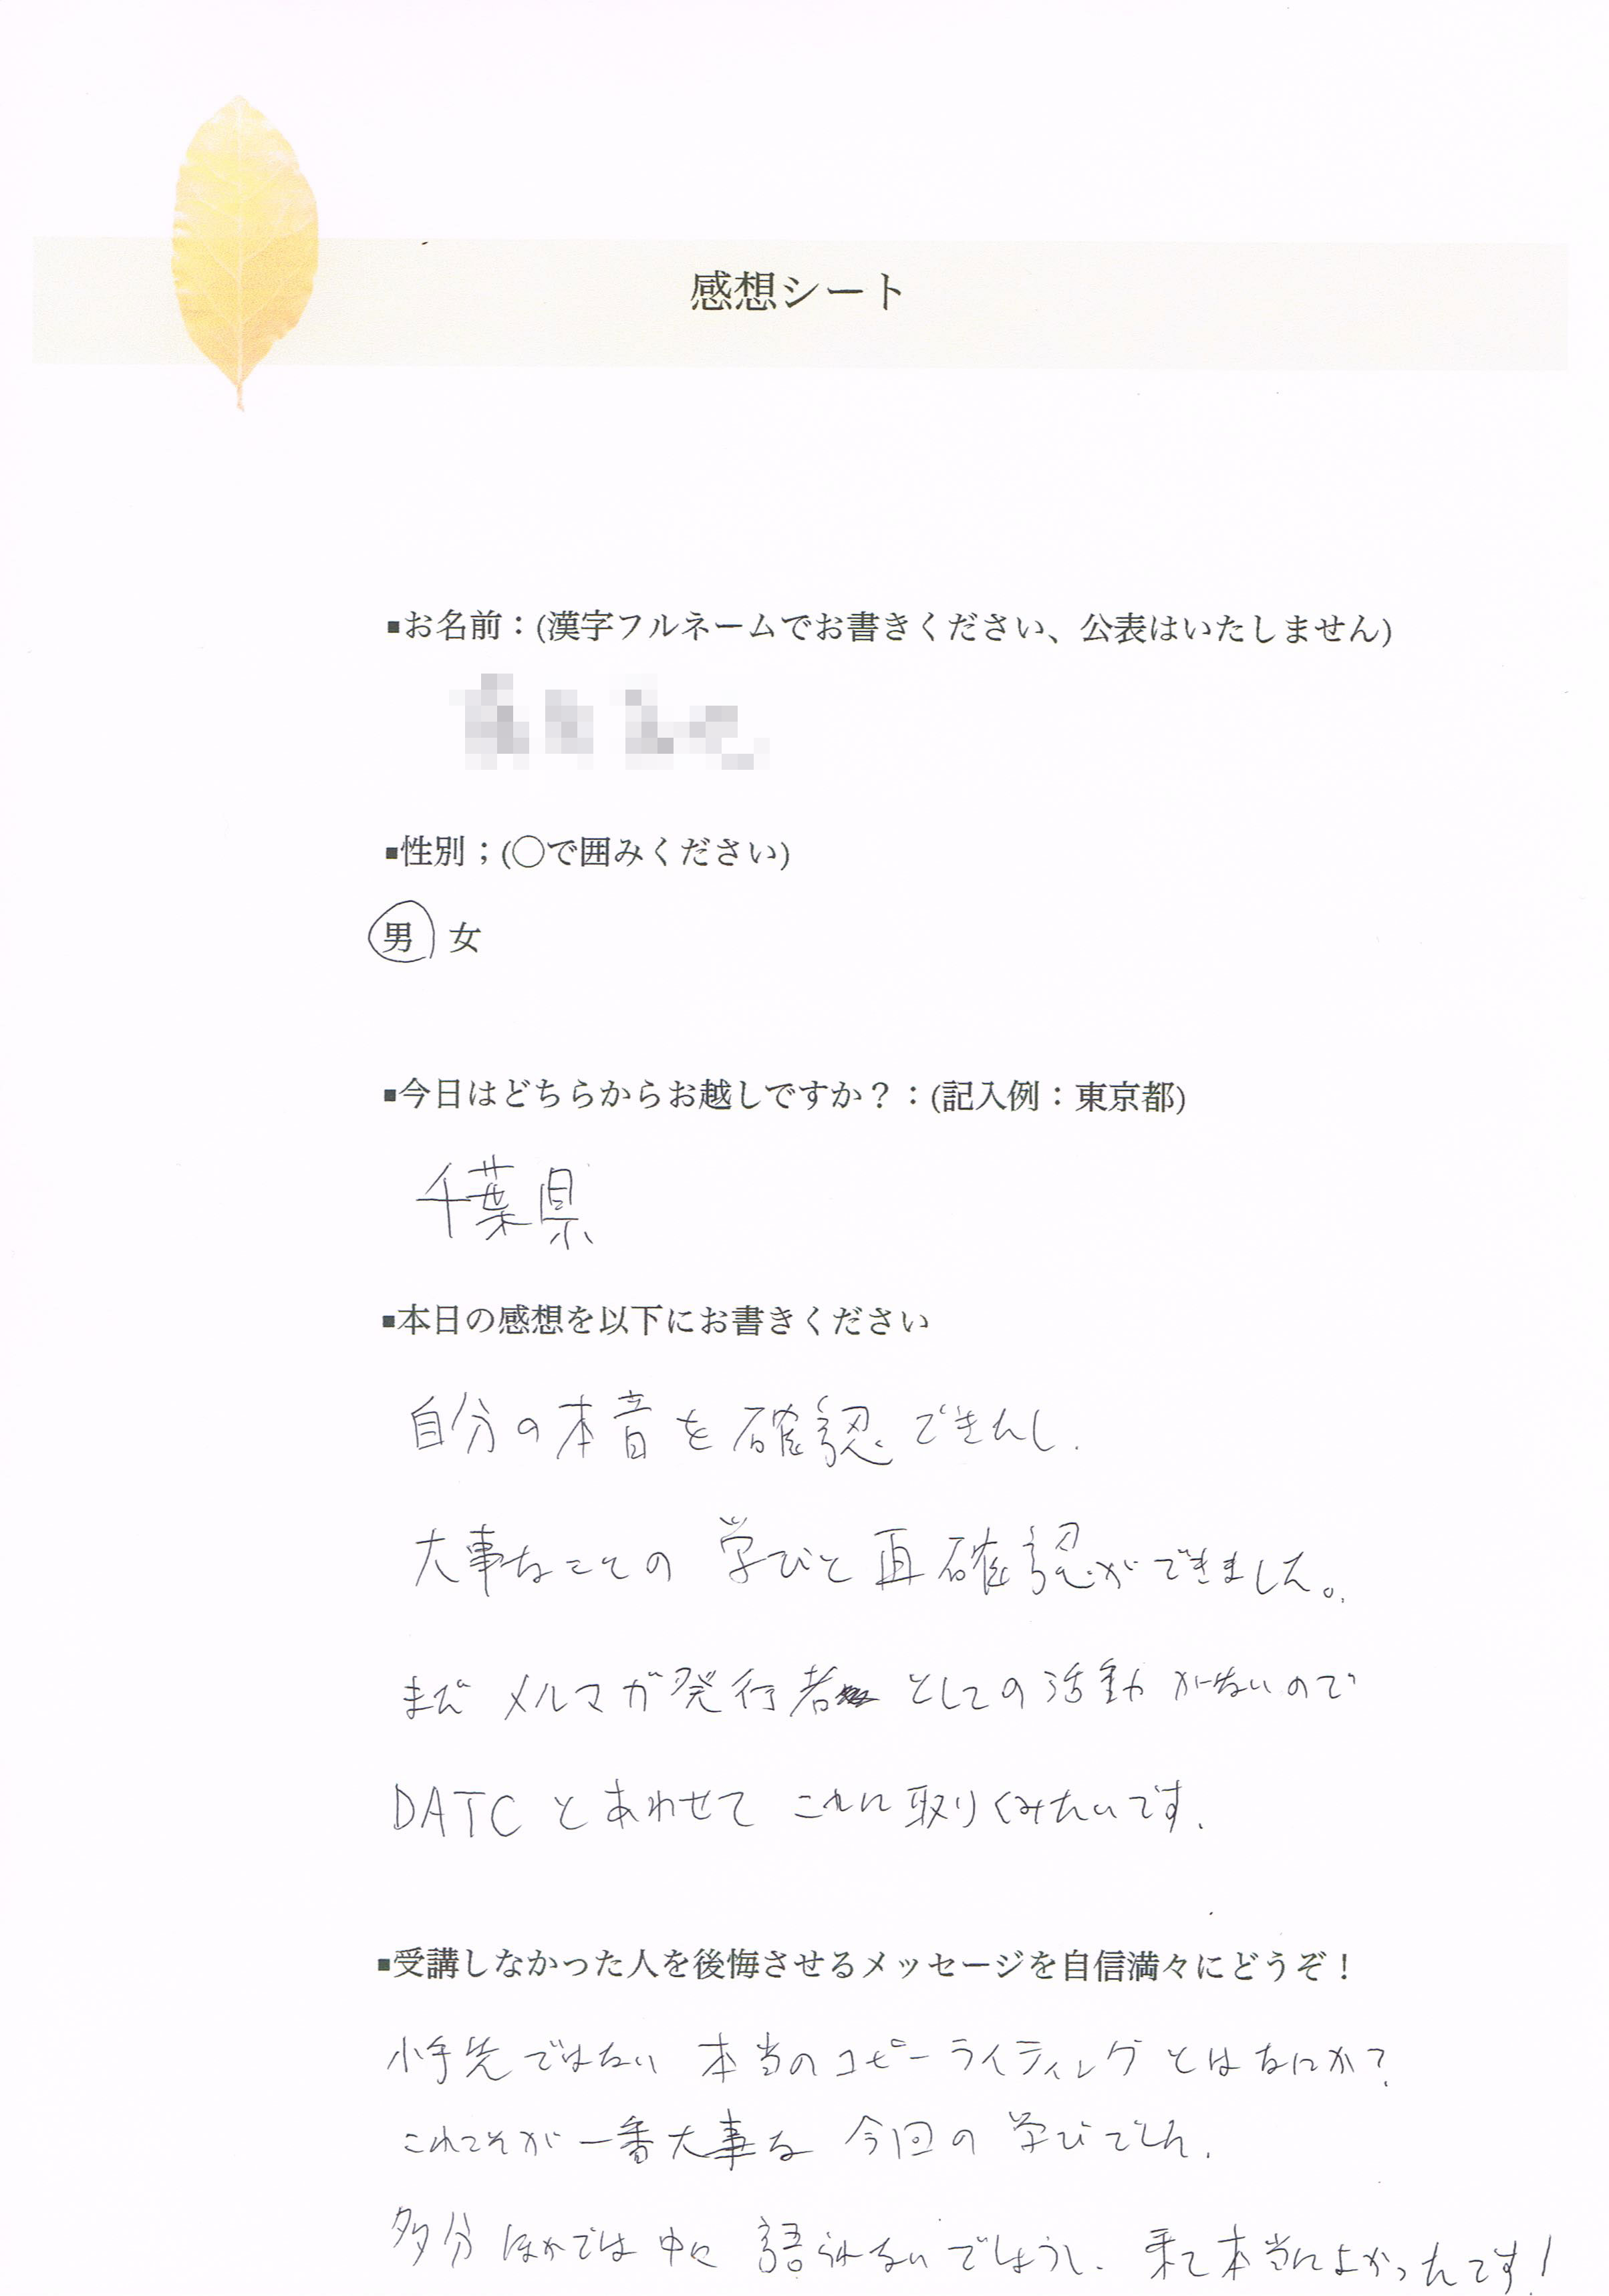 感想シート
■お名前：(漢字フルネームでお書きください、公表はいたしません)
■性別；(〇で囲みください)
男 女
■今日はどちらからお越しですか？：(記入例：東京都)
千葉県
■本日の感想を以下にお書きください
自分の本音を確認できたし.
大事なことの 学びと再確認ができました。
まだ メルマガ発行者 としての活動がないので
DATC とあわせて これに取りくみたいです.
■受講しなかった人を後悔させるメッセージを自信満々にどうぞ！
小手先ではない 本当のコピーライティングとはなにか?
これこそが一番大事な 今回の学びでした.
多分ほかでは 語られないでしょうし、来て本当によかったです!